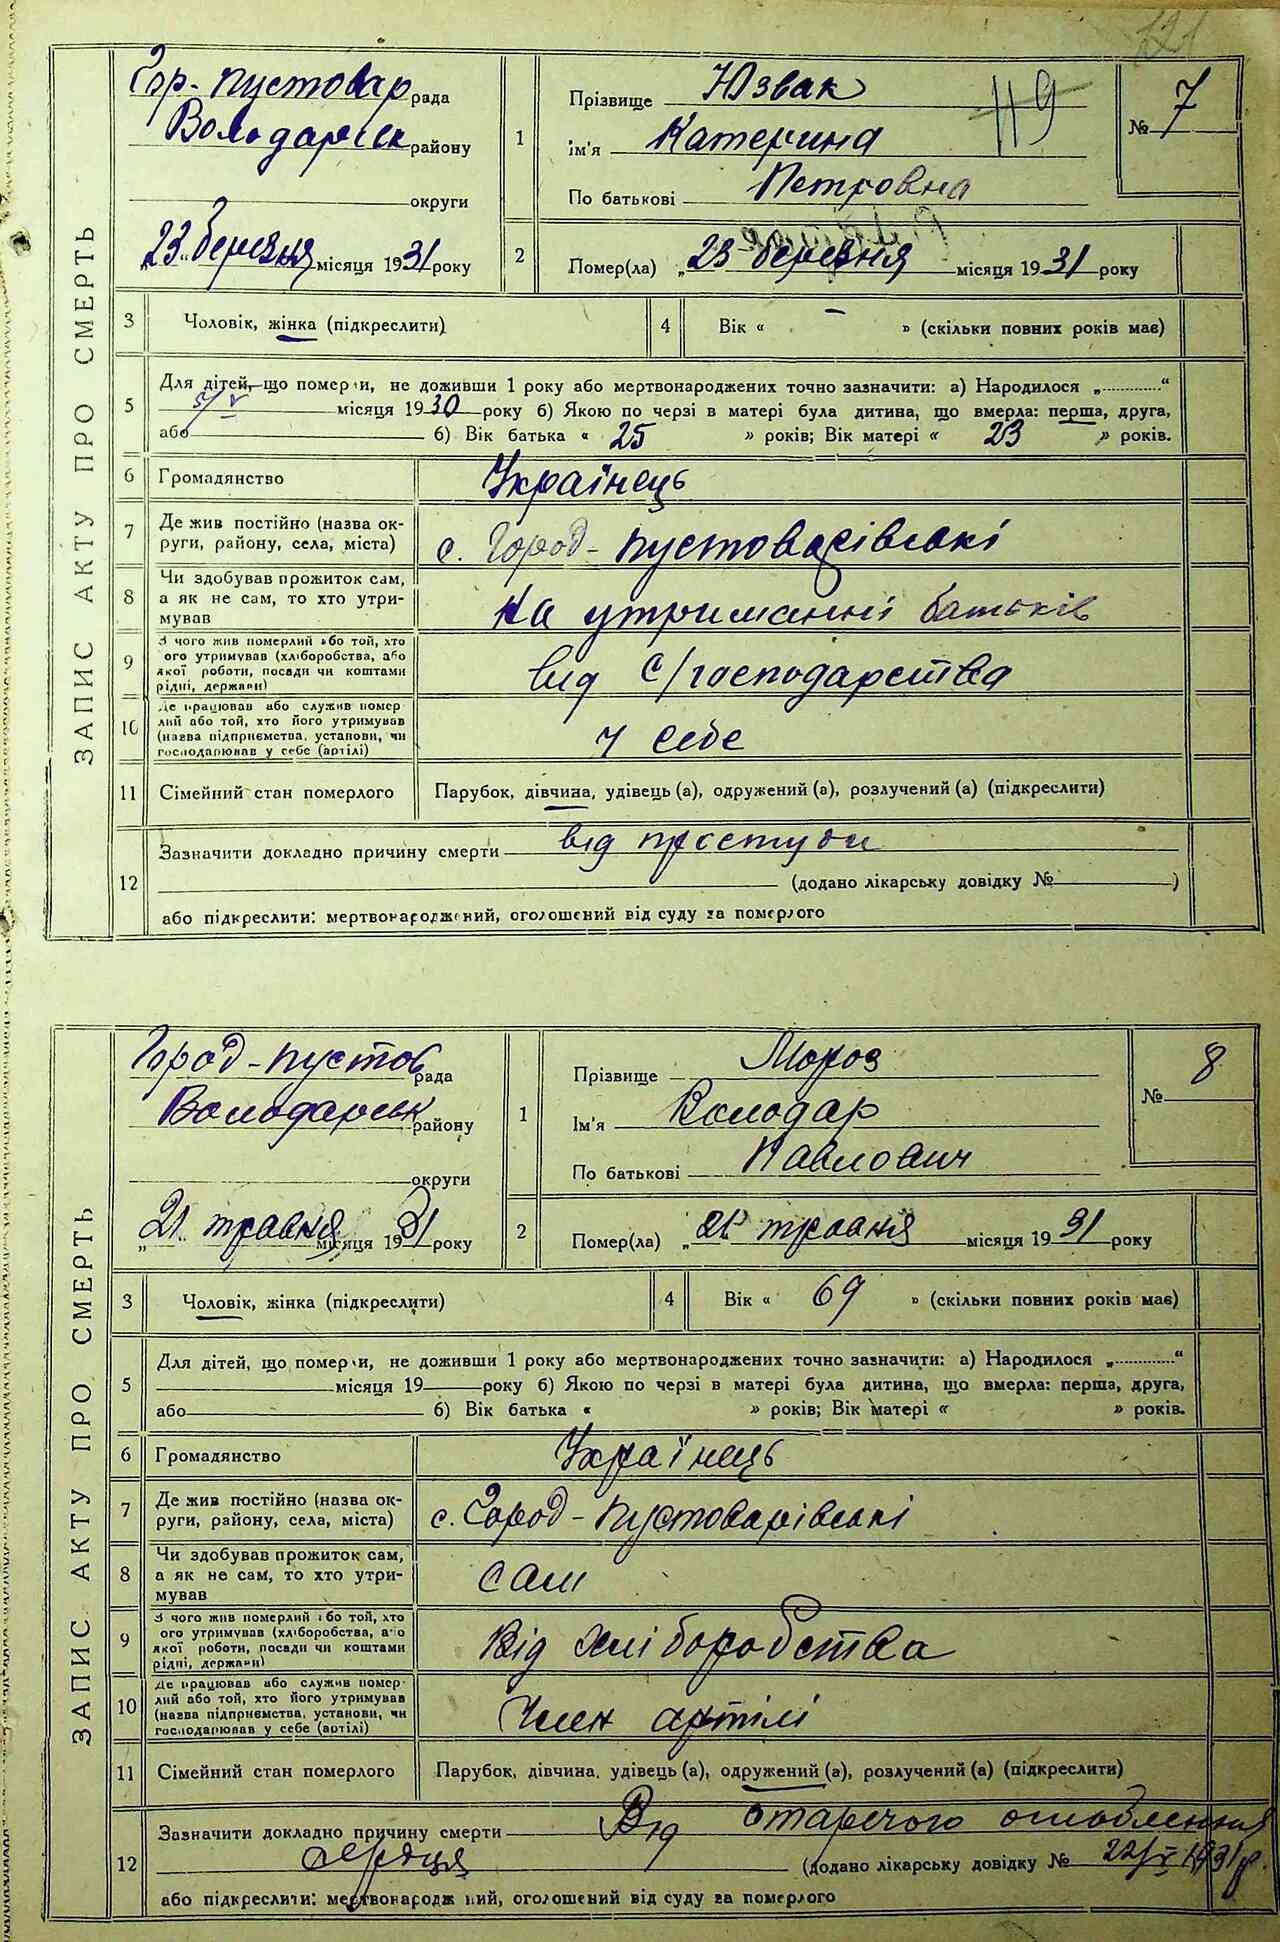 121
ЗАПИС АКТУ ПРО СМЕРТЬ
Гор-Пустовар рада
Володарськ району
округи
„23„ березня місяця 1931 року
1
Прізвище Юзвак
ім'я Катерина
По батькові Петровна
119
№ 7
2
Помер(ла) „23 березня місяця 1931 року
3
Чоловік, жінка (підкреслити)
4
Вік « - » (скільки повних років має)
5
Для дітей, що померли, не доживши 1 року або мертвонароджених точно зазначити: а) Народилося „............“
5/V місяця 1930 року б) Якою по черзі в матері була дитина, що вмерла: перша, друга,
або б) Вік батька « 25 » років; Вік матері « 23 » років.
6
Громадянство
Українець
7
Де жив постійно (назва ок-
руги, району, села, міста)
с. Город-Пустоварівські
8
Чи здобував прожиток сам,
а як не сам, то хто утри-
мував
На утриманні батьків
9
З чого жив померлий або той, хто
ого утримував (хліборобства, або
якої роботи, посади чи коштами
рідні, держави)
від с/господарства
10
Де працював або служив помер-
лий або той, хто його утримував
(назва підприємства, установи, чи
господарював у себе (артілі)
у себе
11
Сімейний стан померлого
Парубок, дівчина, удівець (а), одружений (а), розлучений (а) (підкреслити)
12
Зазначити докладно причину смерти від простуди
(додано лікарську довідку № )
або підкреслити: мертвонароджений, оголошений від суду за померлого
ЗАПИС АКТУ ПРО СМЕРТЬ
Город-Пустов рада
Володарськ району
округи
„21„ травня місяця 1931 року
1
Прізвище Мороз
Ім'я Володар
По батькові Павлович
№ 8
2
Помер(ла) „21 травня місяця 1931 року
3
Чоловік, жінка (підкреслити)
4
Вік « 69 » (скільки повних років має)
5
Для дітей, що померли, не доживши 1 року або мертвонароджених точно зазначити: а) Народилося „............“
місяця 19 року б) Якою по черзі в матері була дитина, що вмерла: перша, друга,
або б) Вік батька « » років; Вік матері « » років.
6
Громадянство
Українець
7
Де жив постійно (назва ок-
руги, району, села, міста)
с. Город-Пустоварівські
8
Чи здобував прожиток сам,
а як не сам, то хто утри-
мував
Сам
9
З чого жив померлий або той, хто
ого утримував (хліборобства, або
якої роботи, посади чи коштами
рідні, держави)
Від хліборобства
10
Де працював або служив помер-
лий або той, хто його утримував
(назва підприємства, установи, чи
господарював у себе (артілі)
Член артілі
11
Сімейний стан померлого
Парубок, дівчина, удівець (а), одружений (а), розлучений (а) (підкреслити)
12
Зазначити докладно причину смерти Від старечого ослаблення
сердця (додано лікарську довідку № 22/V 1931р.
або підкреслити: мертвонароджений, оголошений від суду за померлого